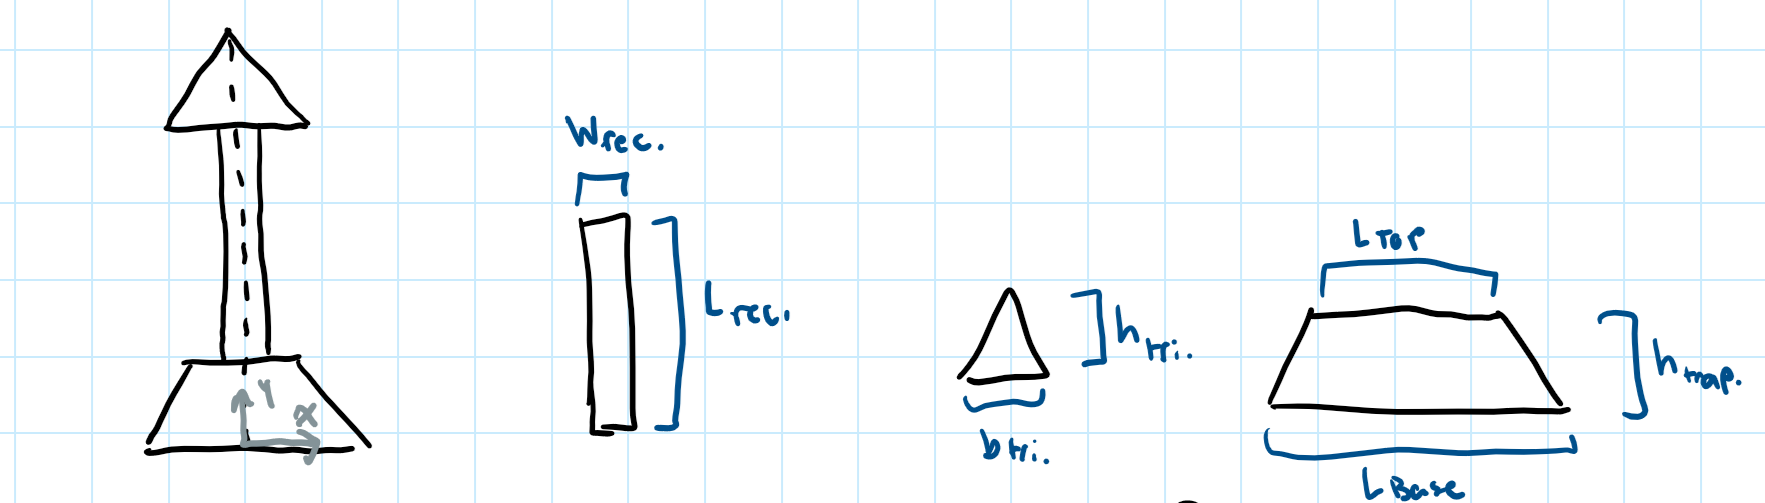 Y
X
Wrec.
Lrec.
htri.
btri.
LTOP
htrap.
LBase